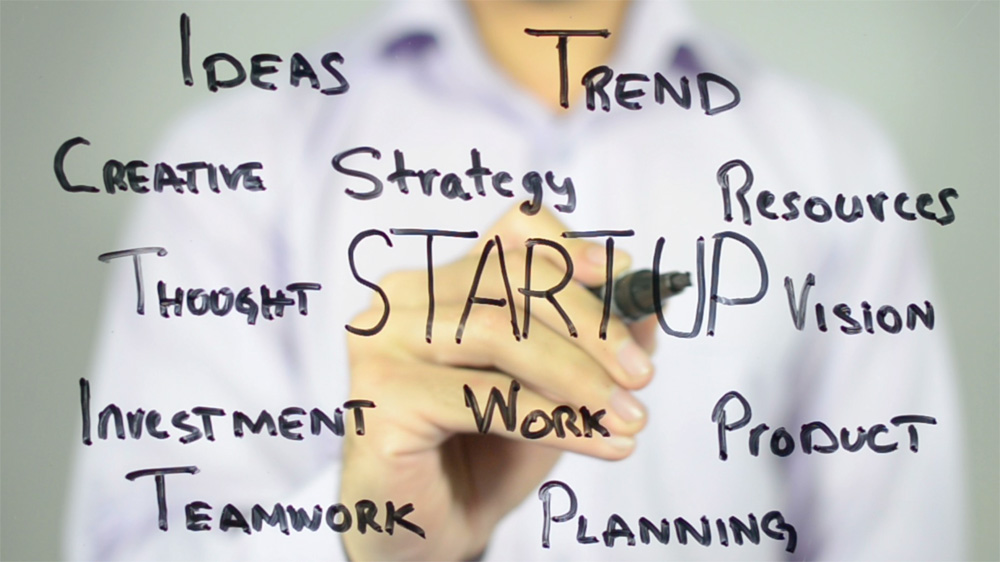 IDEAS TREND
CREATIVE Strategy Resources
THOUGHT STARTUP VISION
INVESTMENT WORK PRODUCT
TEAMWORK PLANNING